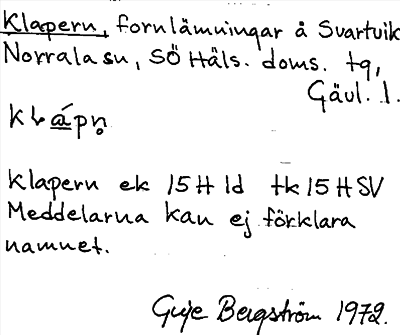 Klapern, fornlämningar å Svartvik
Norrala sn, SÖ Häls. doms. tg,
Gävl. l.
Klapern ek 15H 1d tk 15H SV
Meddelarna kan ej förklara
namnet.
Bergström 1972.